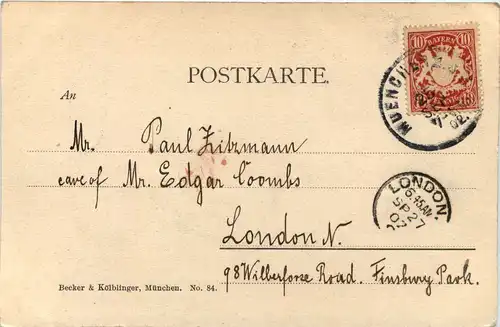 10 BAYERN 10
POSTKARTE.
MUENCHEN
An
Mr. Paul Fritzmann
care of Mr. Edgar Coombs
LONDON.
6.45AM
SP 27
02
London N.
98 Wilberforze Road. Finsbury Park.
Becker & Kölblinger, München. No. 84.